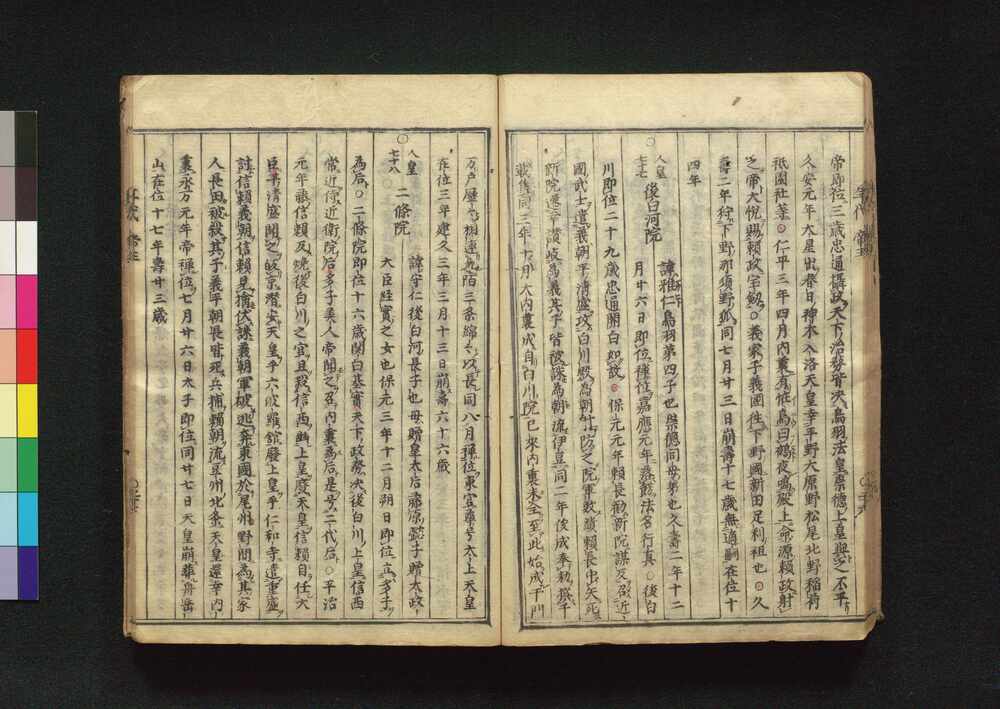 帝即位三歳忠通摂政天下治務皆決鳥羽法皇崇徳上皇與之不平
久安元年大星出春日神木入洛天皇幸平野大原野松尾北野稲荷
祇園社等○仁平三年四月内裏有怪鳥曰鵺夜鳴殿上命源頼政射
之帝大悦賜頼政宝剱○義家子義國徃下野國新田足利祖也○久
壽二年狩下野那須野狐同七月廿三日崩壽十七歳無適嗣在位十
四年
人皇
七十七
後白河院
諱雅仁鳥羽第四子也崇徳同母弟也久壽二年十二
月廿六日即位禅位嘉應元年薙髪法名行真○後白
川即位二十九歳忠通関白如故○保元元年頼長勧新院謀反召近
國武士遣義朝平清盛攻白川殿為朝防之院軍敗頼長中矢死
新院遷幸讃岐為義其子皆被誅為朝流伊豆同二年俊成奉勅撰千
載集同三年十月大内裏成自白川院已來内裏未全至此始成千門
万戸屋宅相連九陌三条綿々以長同八月禅位東宮尊号太上天皇
在位三年建久三年三月十三日崩壽六十六歳
人皇
七十八
二條院
諱守仁後白河長子也母贈皇太后藤原懿子贈太政
大臣経實之女也保元三年十二月朔日即位立多子
為后○二條院即位十六歳関白基實天下政務决後白川上皇信西
常近侍近衛院后多子美人帝聞之召内裏為后是号二代后○平治
元年藤信頼反焼後白川之宮且殺信西幽上皇及天皇信頼自任大
臣平清盛聞之皈京潜安天皇乎六波羅舘廢上皇乎仁和寺遣重盛
討信頼義朝信頼見擒伏誅義朝軍破逃奔東國於尾州野間為其家
人長田被殺其子義平朝長皆死兵捕頼朝流豆州北条天皇還幸内
裏永万元年帝禅位七月廿六日太子即位同廿七日天皇崩葬舟岳
山在位十七年壽廿三歳